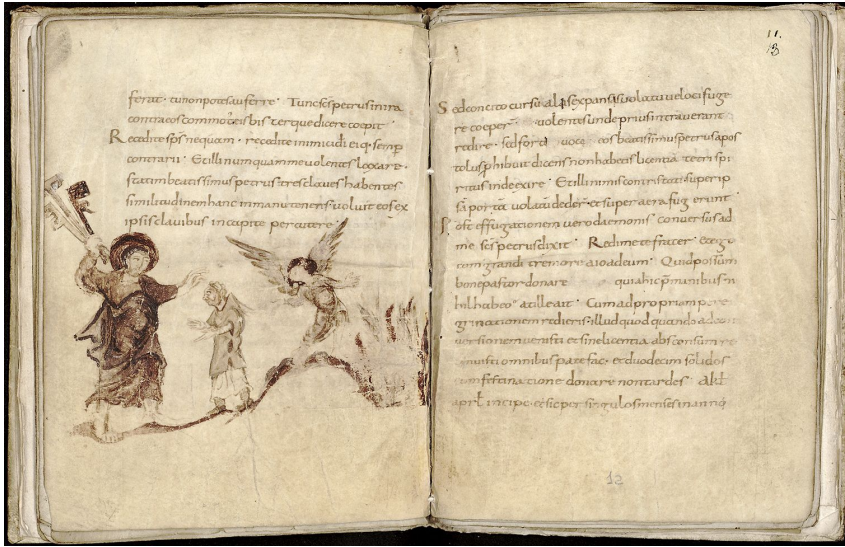 ferat · tu non potes auferre · Tunc scs petrus in ira
contra eos commotus bis terque dicere coepit ·
Recedite sps nequam · recedite inimici di eiq · semp
contrarii · Et illi numquam me volentes laxare ·
statim beatissimus petrus tres claves habentes
similitudinem hanc in manu tenens voluit eos ex
ipsis clavibus in capite percutere ·
11.
13
Sed concito cursu alis expansis volatu veloci fuge
re coeper volentes unde prius intraverant
redire · sed forti voce eos beatissimus petrus apos
tolus phibuit dicens non habetis licentia teteri spi
ritus inde exire · Et illi nimis contristati super ip
sa porta volatu dedert et super aera fugerunt ·
Post effugationem vero daemonis conversus ad
me scs petrus dixit · Redime te frater · et ego
cum grandi tremore aio ad eum · Quid possum
bone pastor donare quia hic p manibus n
hil habeo at ille ait · Cum ad propriam pere
grinationem redieris illud quod quando ad
versionem venisti et sine licentia absconsum re
omnibus patefac · et duodecim solidos
cum festinatione donare non tardes · a kl
aprl incipe et sic per singulos menses in anno
12